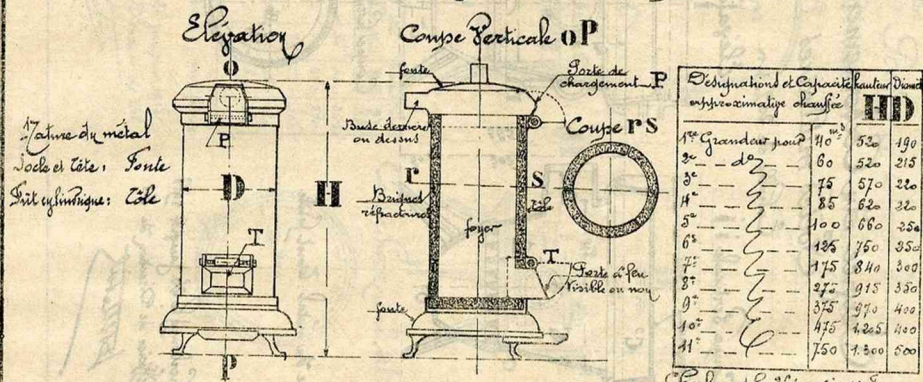 Elévation
O
P
D
H
T
P
Nature du métal
Socle et Tête: Fonte
Fût cylindrique: Tôle
Coupe Verticale OP
fonte
Porte de chargement P
Buse derrière
ou dessus
Coupe rs
r
s
Briques
réfractaires
tôle
foyer
T
Porte à feu
Visible ou non
fonte
Désignations et Capacité hauteur Diamèt
approximative chauffée H D
1re Grandeur pour 40 m3 520 190
2e _ do _ 60 520 215
3e 75 570 220
4e 85 620 220
5e 100 660 250
6e 125 750 250
7e 175 840 300
8e 275 915 350
9e 375 970 400
10e 475 1.205 400
11e 750 1.300 500